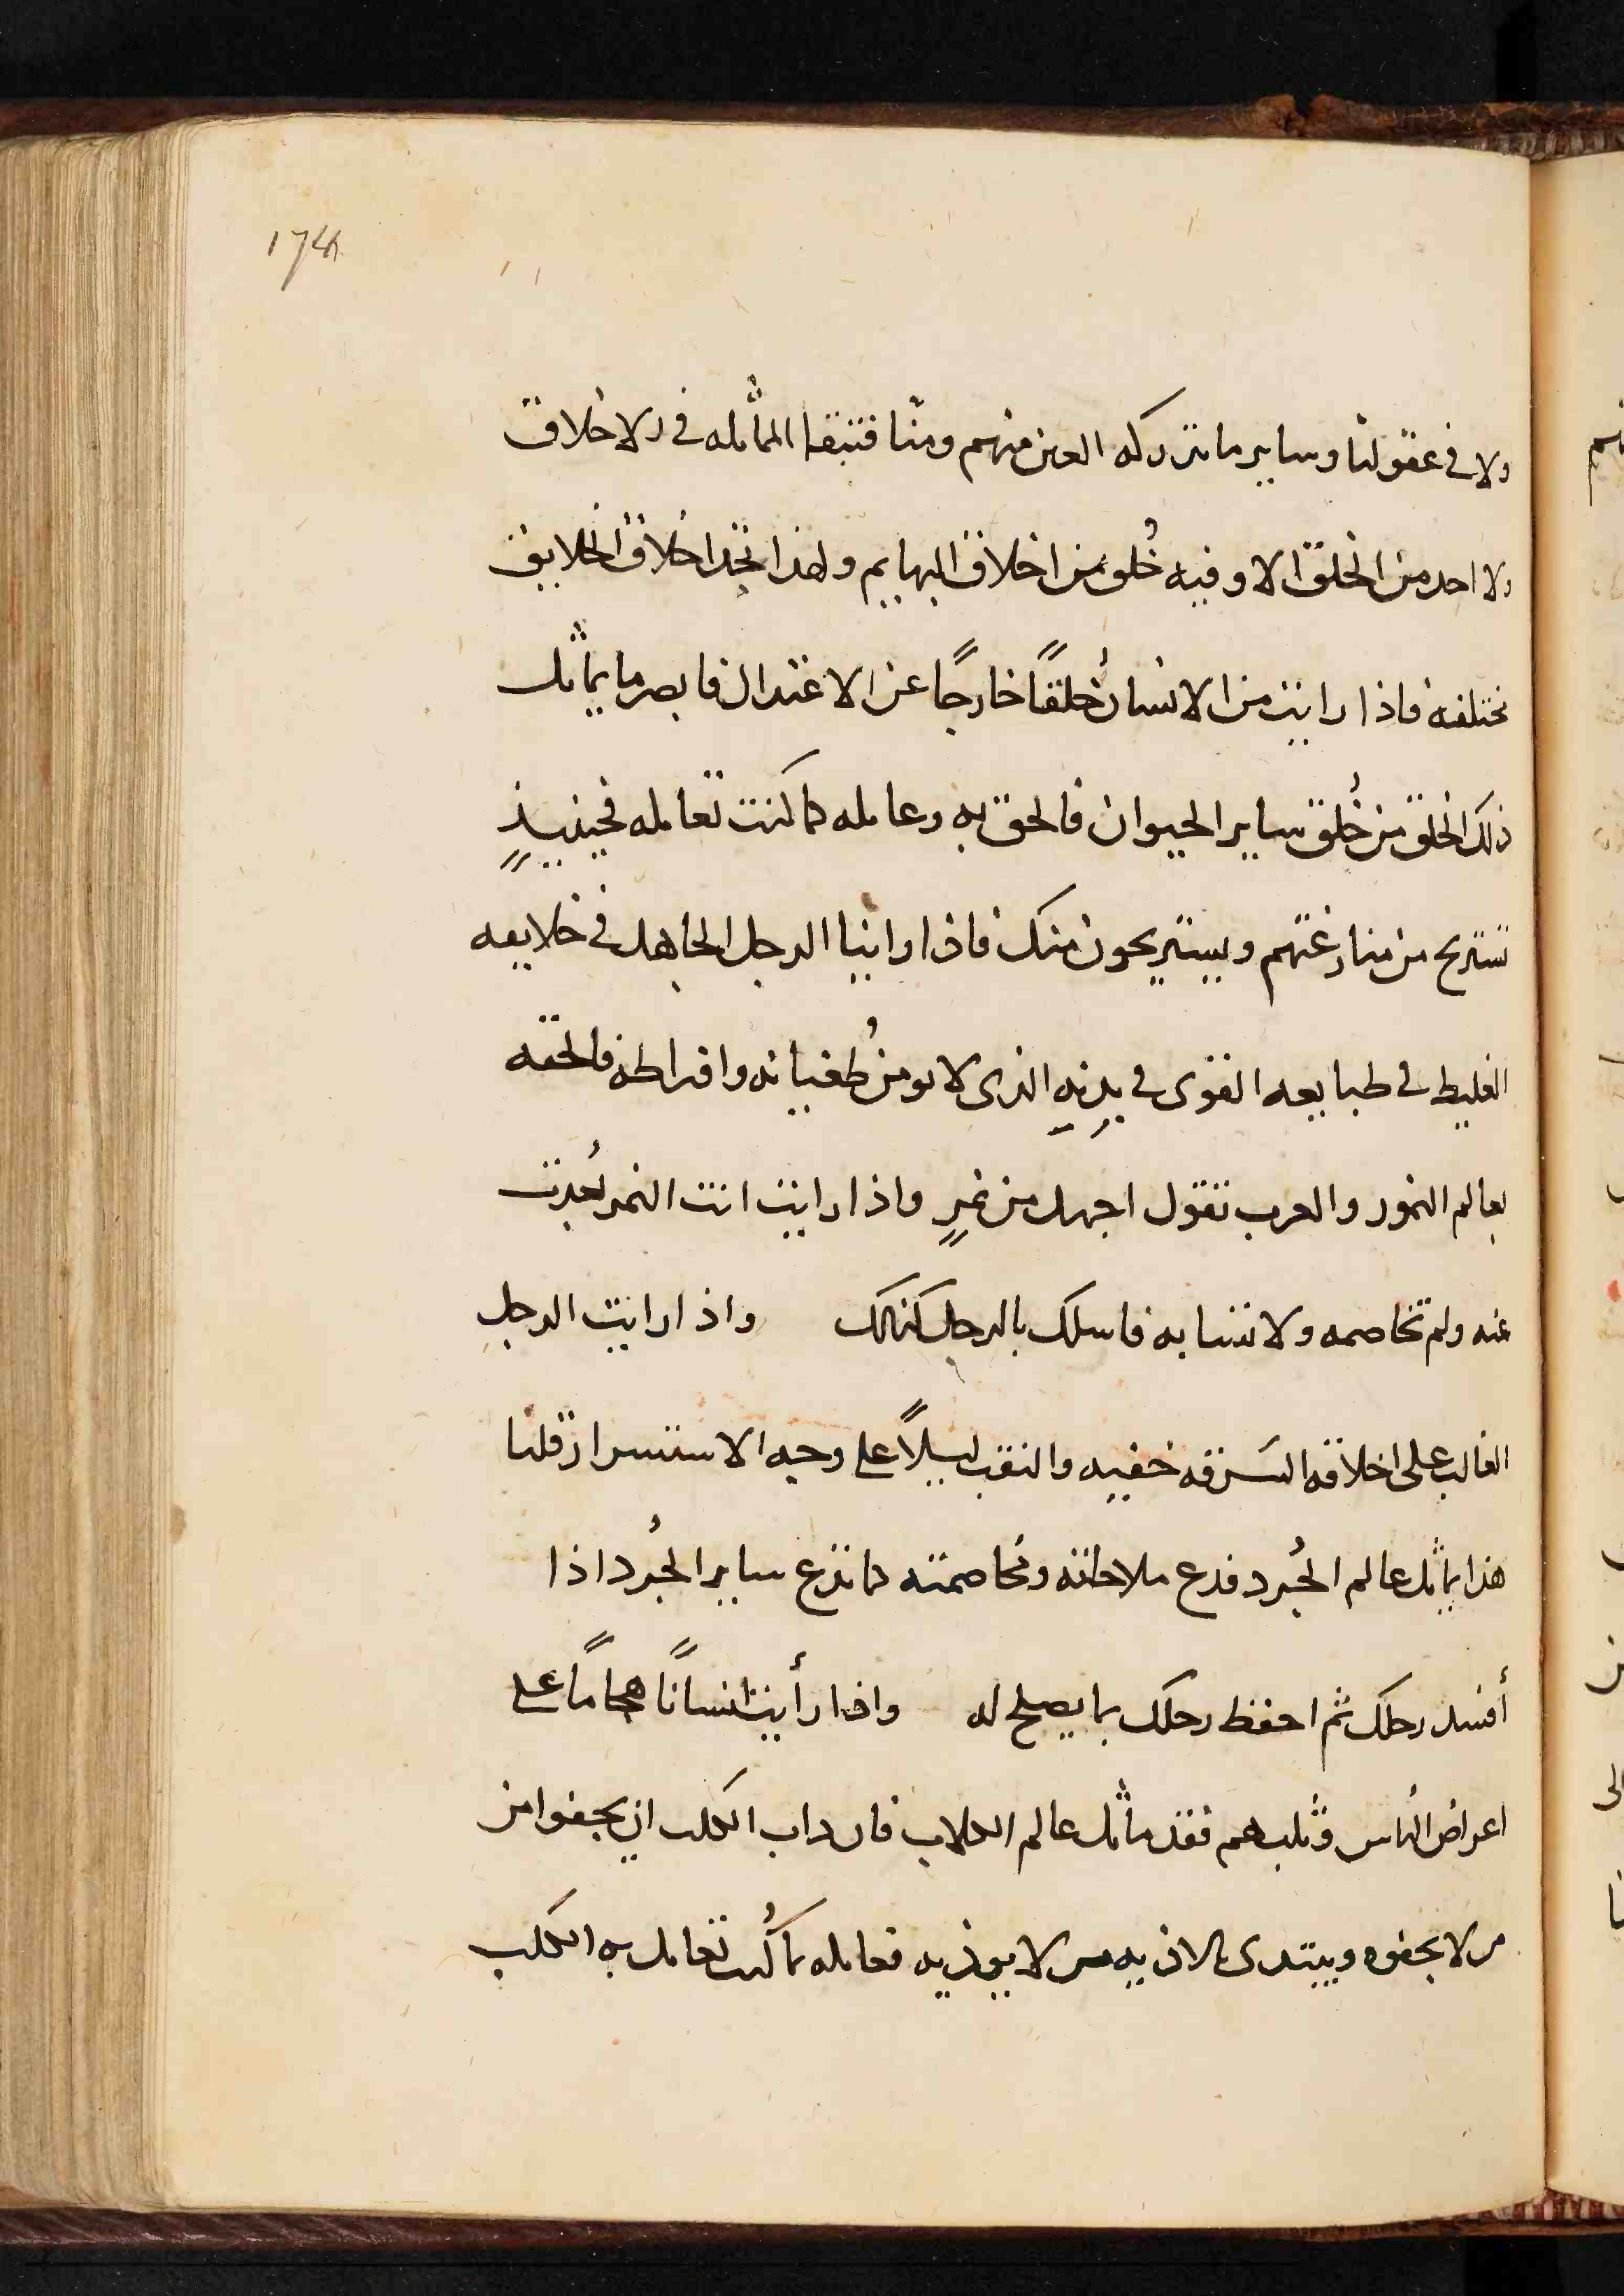 174
ولا فى عقولنا وساير ما تدركه العين منهم ومنا فتبقا المماثله فى الاخلاق
ولا احد من الخلق الا وفيه خُلق من اخلاق البهايم ولهذا تجد اخلاق الخلايق
مختلفه فاذا رايت من الانسان خُلقًا خارجًا عن الاعتدال فابصر ما يماثل
ذلك الخلق من خُلق ساير الحيوان فالحقه به وعامله كما كنت تعامله فحينيذٍ
تستريح من منازعتهم ويستريحون منك فاذا راينا الرجل الجاهل فى خلايعه
الغليظ فى طبايعه القوى فى بدنِهِ الذى لا يومن طُغيانه وافراطه فالحقه
بعالم النمور والعرب تقول اجهل من نمرٍ واذا رايت انت النمر بُعدت
عنه ولم تخاصمه ولا تشابه فاسلك بالرجل كذلك واذا رايت الرجل
الغالب على اخلاقه السَرقه خفيه والنقب ليلاً على وجه الاستسرار قلنا
هذا يماثل عالم الجُرد فدع ملاحاته ومخاصمته كما تدع ساير الجُرد اذا
أفسد رحلك ثم احفظ رحلك بما يصلح له واذا رأيت انسانًا هجامًا على
اعراض الناس وثلبهم فقد ماثل عالم الكلاب فان داب الكلب ان يجفوا من
من لا يجفوه ويبتدى بالاذيه من لا يوذيه فعامله بما كُنت تعامل به الكلب